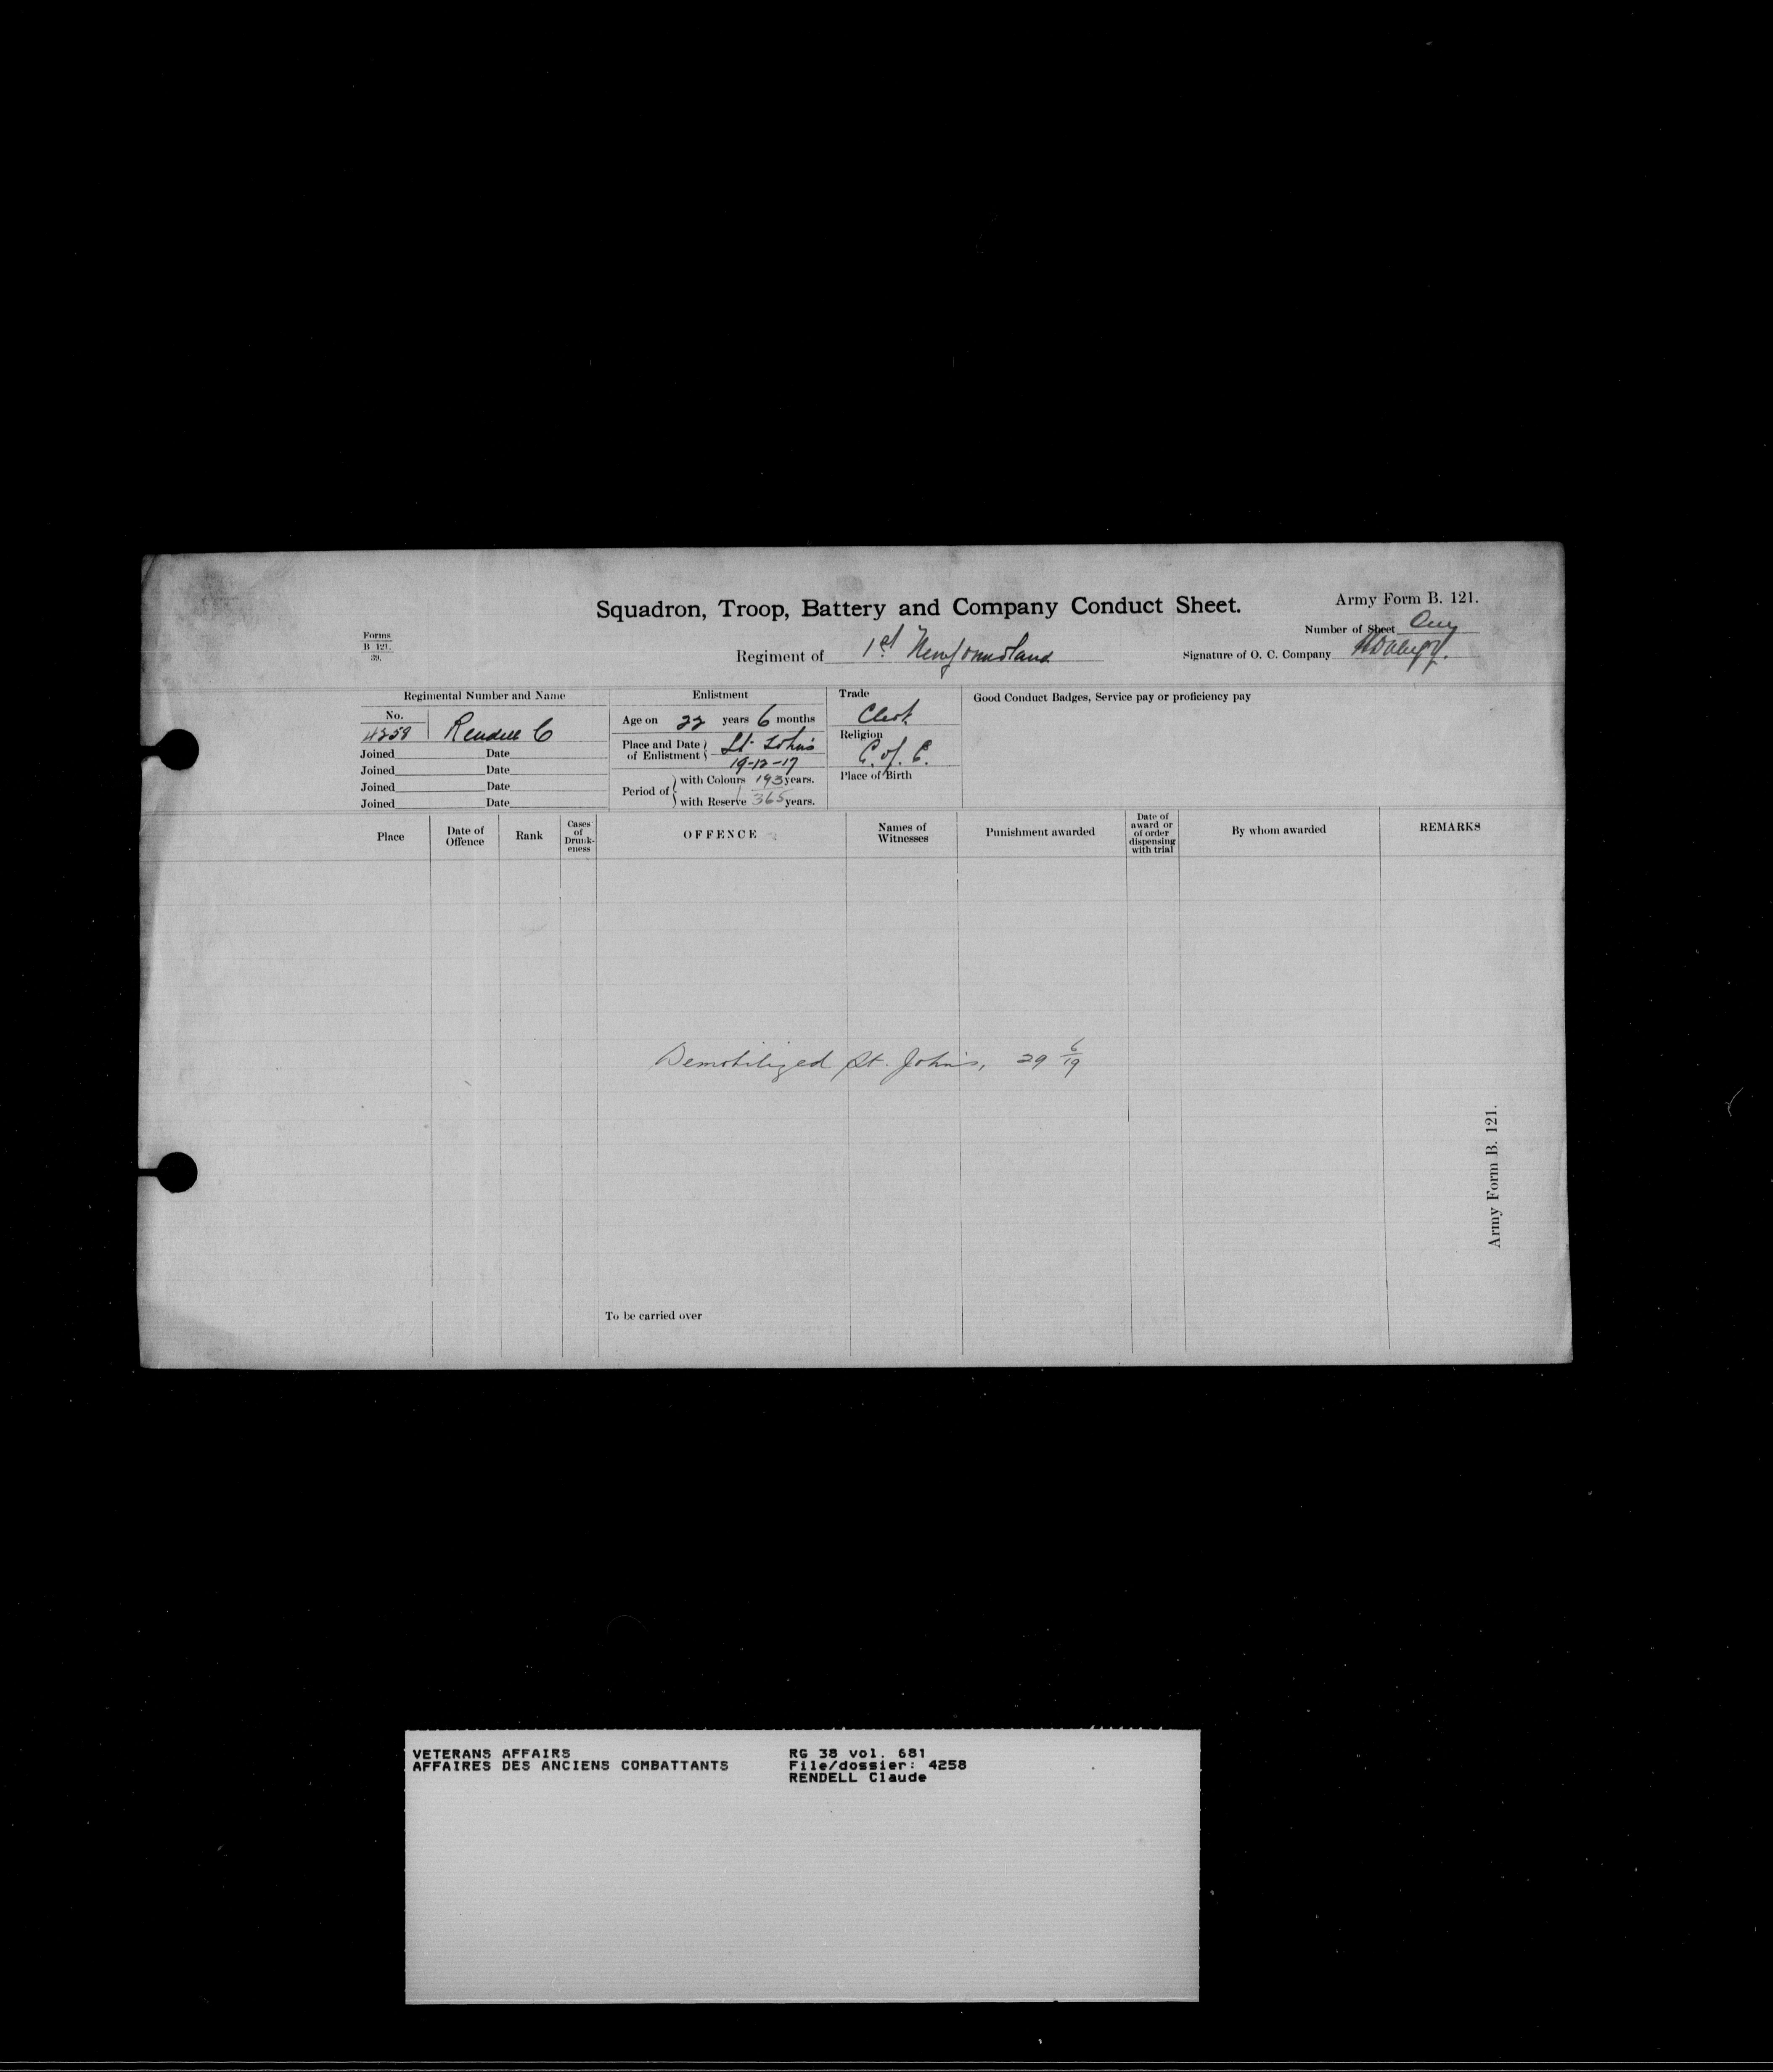 Squadron, Troop, Battery and Company Conduct Sheet.
Army Form B. 121.
Forms
B 121.
39.
Number of Sheet
Regiment of 1st Newfoundland
Signature of O. C. Company
Regimental Number and Name
No.
4258 Rendell C
Joined Date
Joined Date
Joined Date
Joined Date
Enlistment
Age on 22 years 6 months
Place and Date of Enlistment St. John's
19-12-17
Period of with Colours 193 years.
with Reserve 365 years.
Trade
Clerk
Religion
C. of E.
Place of Birth
Good Conduct Badges, Service pay or proficiency pay
Place
Date of Offence
Rank
Cases of Drunk-eness
OFFENCE
Names of Witnesses
Punishment awarded
Date of award or of order dispensing with trial
By whom awarded
REMARKS
Demobilized St. John's, 29 6/19
Army Form B. 121.
To be carried over
VETERANS AFFAIRS
AFFAIRES DES ANCIENS COMBATTANTS
RG 38 vol. 681
File/dossier: 4258
RENDELL Claude